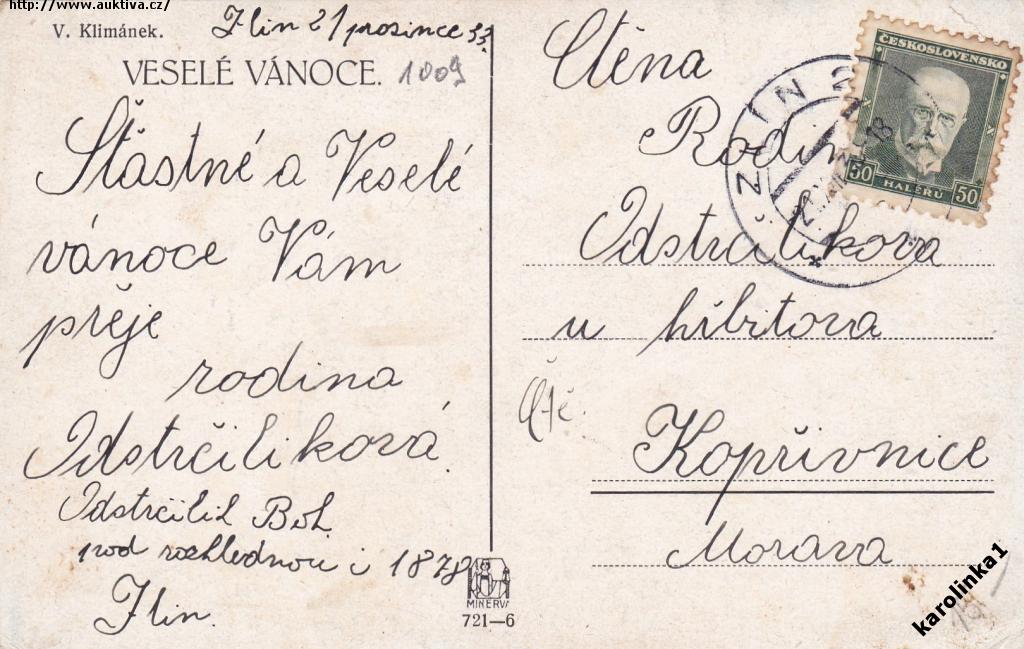 http://www.auktiva.cz/
V. Klimánek.
Zlin 21 prosince 33.
VESELÉ VÁNOCE. 1009
Štastné a Veselé
vánoce Vám
přeje
rodina
Odstrčiliková.
Odstrčilik Boh.
pod rozhlednou č 1878
Zlin.
MINERVA
721—6
Ctěna
Rodina
Odstrčilikova
u hřbitova
Kopřivnice
Morava
ČESKOSLOVENSKO
50 HALÉŘŮ 50
ZLIN 2
karolinka1